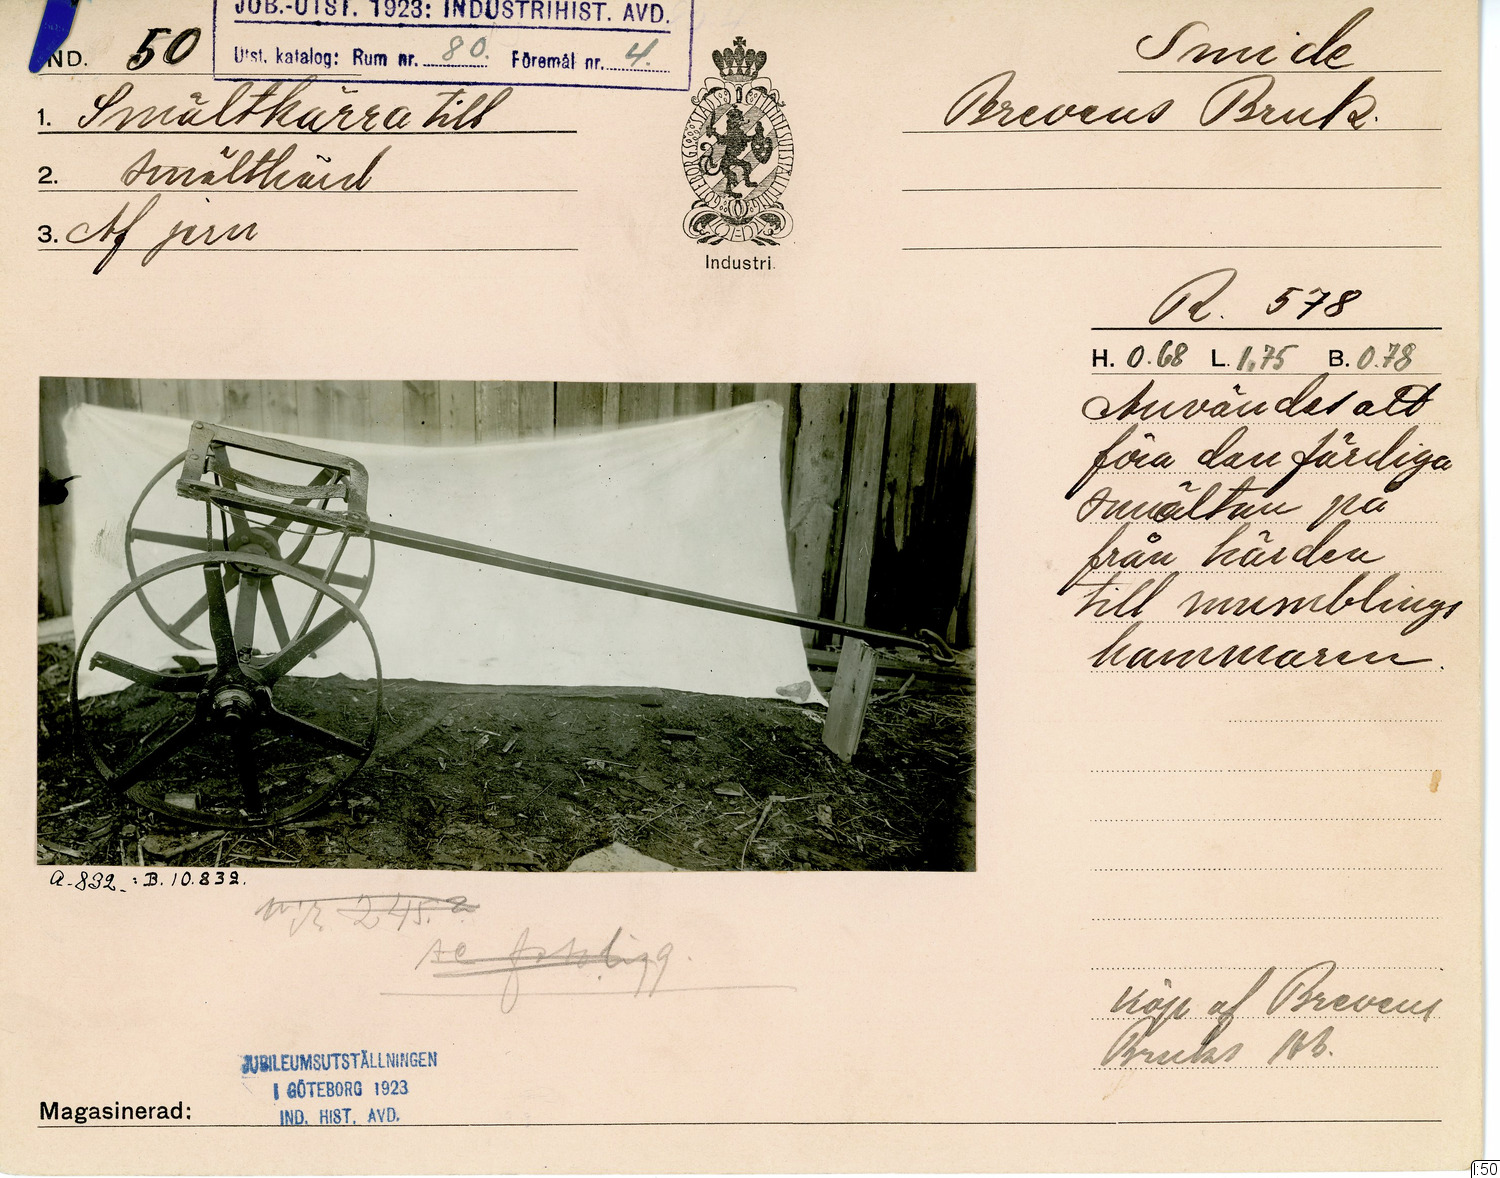 JUB.-UTST. 1923: INDUSTRIHIST. AVD.
Utst. katalog: Rum nr. 80. Föremål nr. 4.
IND. 50
1. Smältkärra till
2. smälthärd
3. Af jern
GÖTEBORGS STADS MINNESUTSTÄLLNING
Industri.
Smide
Brevens Bruk.
R. 578
H. 0.68 L. 1,75 B. 0.78
Användes att
föra den färdiga
smältan på
från härden
till mumblings
hammaren.
A-832 : B.10.832.
245.
Köp af Brevens
Bruks AB.
JUBILEUMSUTSTÄLLNINGEN
I GÖTEBORG 1923
IND. HIST. AVD.
Magasinerad:
I:50